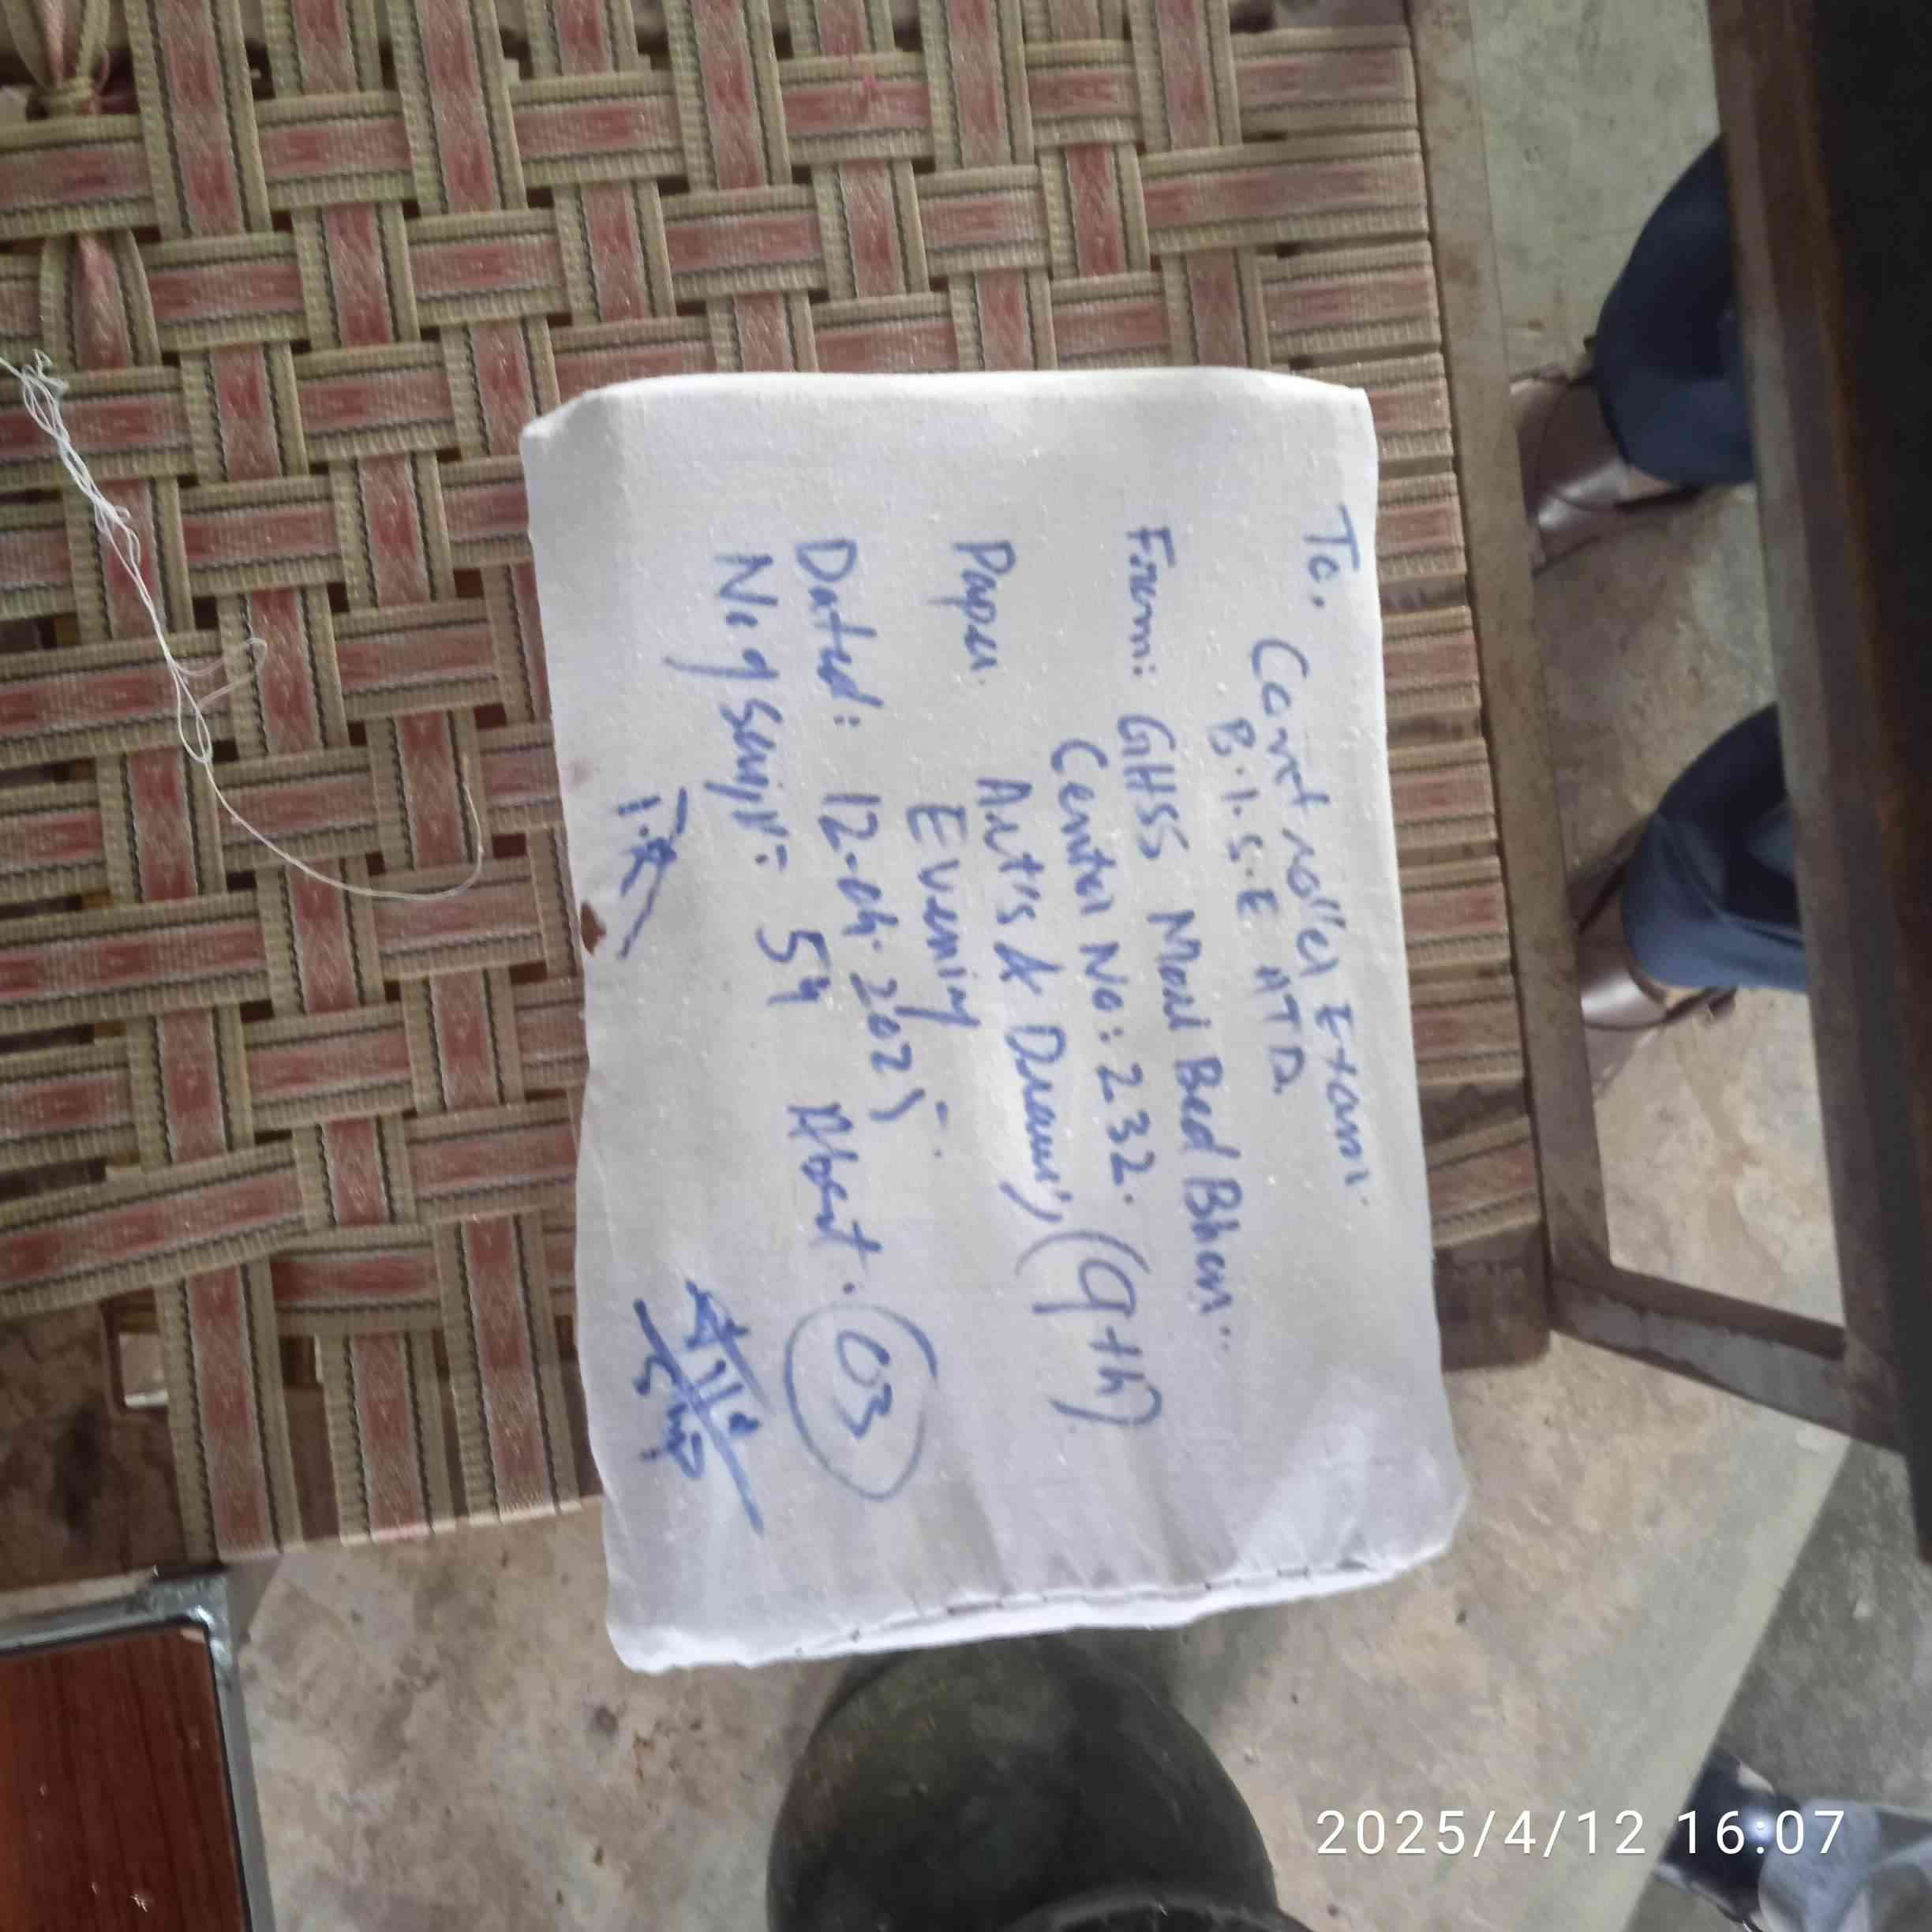 To,
Controller Exam.
B.I.S.E ATD.
From: GHSS Mari Bed Bhen..
Center No: 232.
Paper Art's & Drawing (9th)
Evening
Dated: 12.04.2025
No of Script: 54 Absent. 03
2025/4/12 16:07